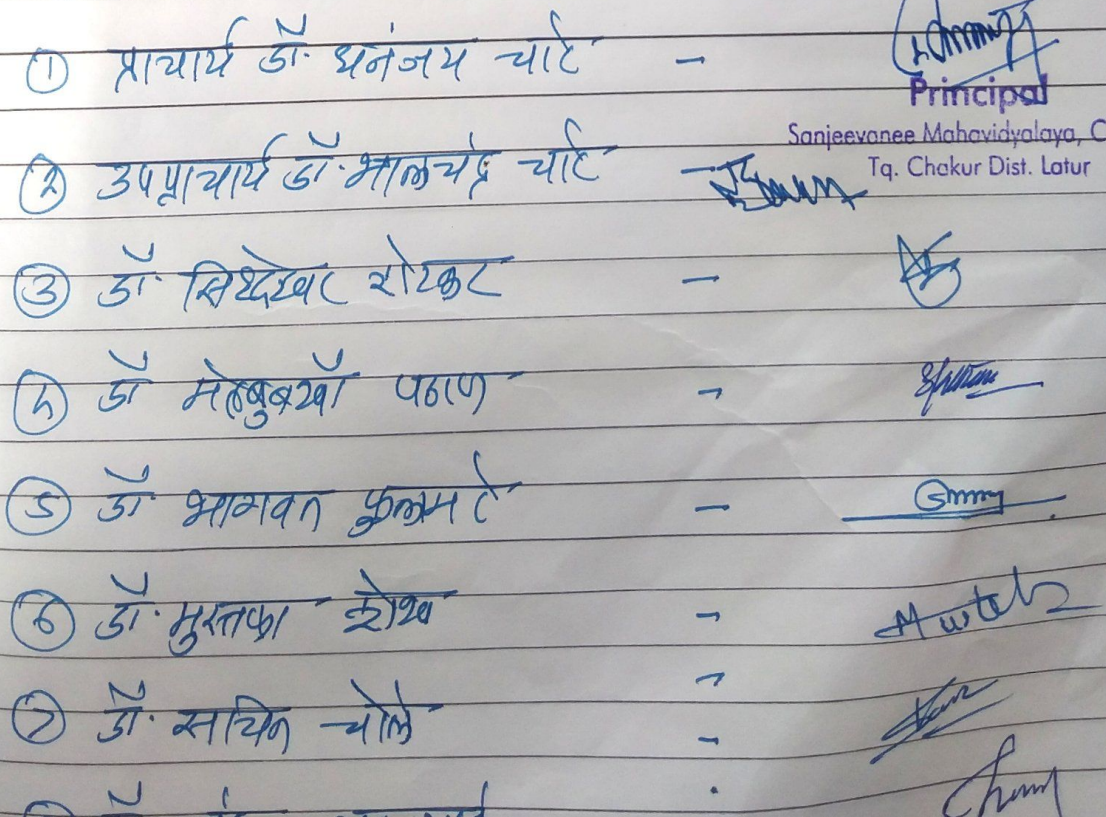 ① प्राचार्य डॉ. धनंजय चाटे -
Principal
Sanjeevanee Mahavidyalaya, C
Tq. Chakur Dist. Latur
② उपप्राचार्य डॉ. भालचंद्र चाटे -
③ डॉ. सिध्देश्वर शेटकार -
४) डॉ मेहबुबखाँ पठाण -
⑤ डॉ. भागवत फुलमटे -
⑥ डॉ. मुस्तफा शेख -
⑦ डॉ. सचिन चोले -